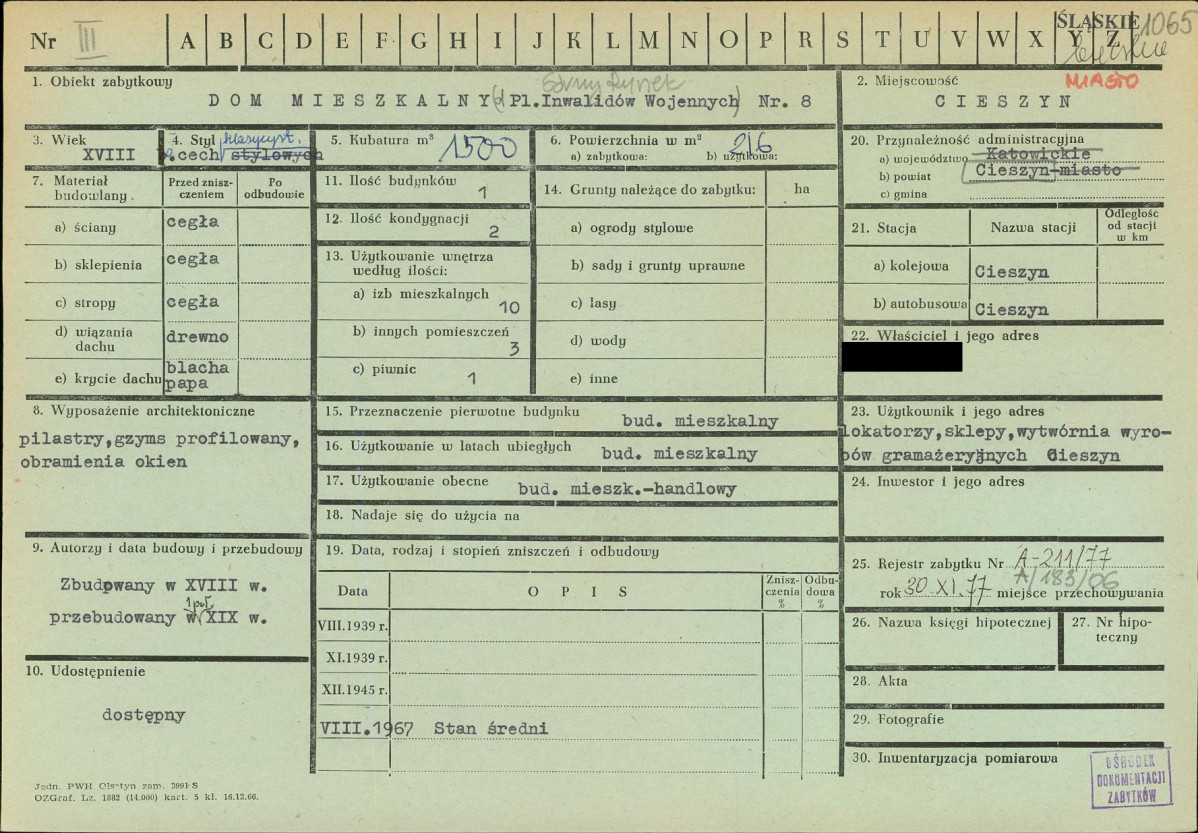 Nr III A B C D E F G H I J K L M N O P R S T U V W X Y Z
ŚLĄSKIE 1065
1. Obiekt zabytkowy
Górny Rynek
DOM MIESZKALNY (d Pl.Inwalidów Wojennych) Nr. 8
2. Miejscowość MIASTO
CIESZYN
3. Wiek
XVIII
4. Styl klasycyst.
cech stylowych
5. Kubatura m³ 1500
6. Powierzchnia w m² 216
a) zabytkowa: b) użytkowa:
20. Przynależność administracyjna
a) województwo Katowickie
b) powiat Cieszyn-miasto
c) gmina
7. Materiał budowlany
Przed znisz-
czeniem
Po
odbudowie
a) ściany cegła
b) sklepienia cegła
c) stropy cegła
d) wiązania
dachu drewno
e) krycie dachu blacha
papa
11. Ilość budynków 1
12. Ilość kondygnacji 2
13. Użytkowanie wnętrza
według ilości:
a) izb mieszkalnych 10
b) innych pomieszczeń 3
c) piwnic 1
14. Grunty należące do zabytku: ha
a) ogrody stylowe
b) sady i grunty uprawne
c) lasy
d) wody
e) inne
21. Stacja Nazwa stacji
Odległość
od stacji
w km
a) kolejowa Cieszyn
b) autobusowa Cieszyn
22. Właściciel i jego adres
8. Wyposażenie architektoniczne
pilastry,gzyms profilowany,
obramienia okien
15. Przeznaczenie pierwotne budynku bud. mieszkalny
16. Użytkowanie w latach ubiegłych bud. mieszkalny
17. Użytkowanie obecne bud. mieszk.-handlowy
18. Nadaje się do użycia na
23. Użytkownik i jego adres
lokatorzy,sklepy,wytwórnia wyro-
bów gramażeryjnych Cieszyn
24. Inwestor i jego adres
9. Autorzy i data budowy i przebudowy
Zbudowany w XVIII w.
1 poł.
przebudowany w XIX w.
19. Data, rodzaj i stopień zniszczeń i odbudowy
Data OPIS
Znisz-
czenia
%
Odbu-
dowa
%
VIII.1939 r.
XI.1939 r.
XII.1945 r.
VIII.1967 Stan średni
25. Rejestr zabytku Nr A-211/77
A/183/06
rok 30 XI.77 miejsce przechowywania
26. Nazwa księgi hipotecznej
27. Nr hipo-
teczny
28. Akta
29. Fotografie
30. Inwentaryzacja pomiarowa
10. Udostępnienie
dostępny
OŚRODEK
DOKUMENTACJI
ZABYTKÓW
Jedn. PWH Olsztyn zam. 3991-S
OZGraf. Lz. 1882 (14.000) kart. 5 kl. 16.12.66.